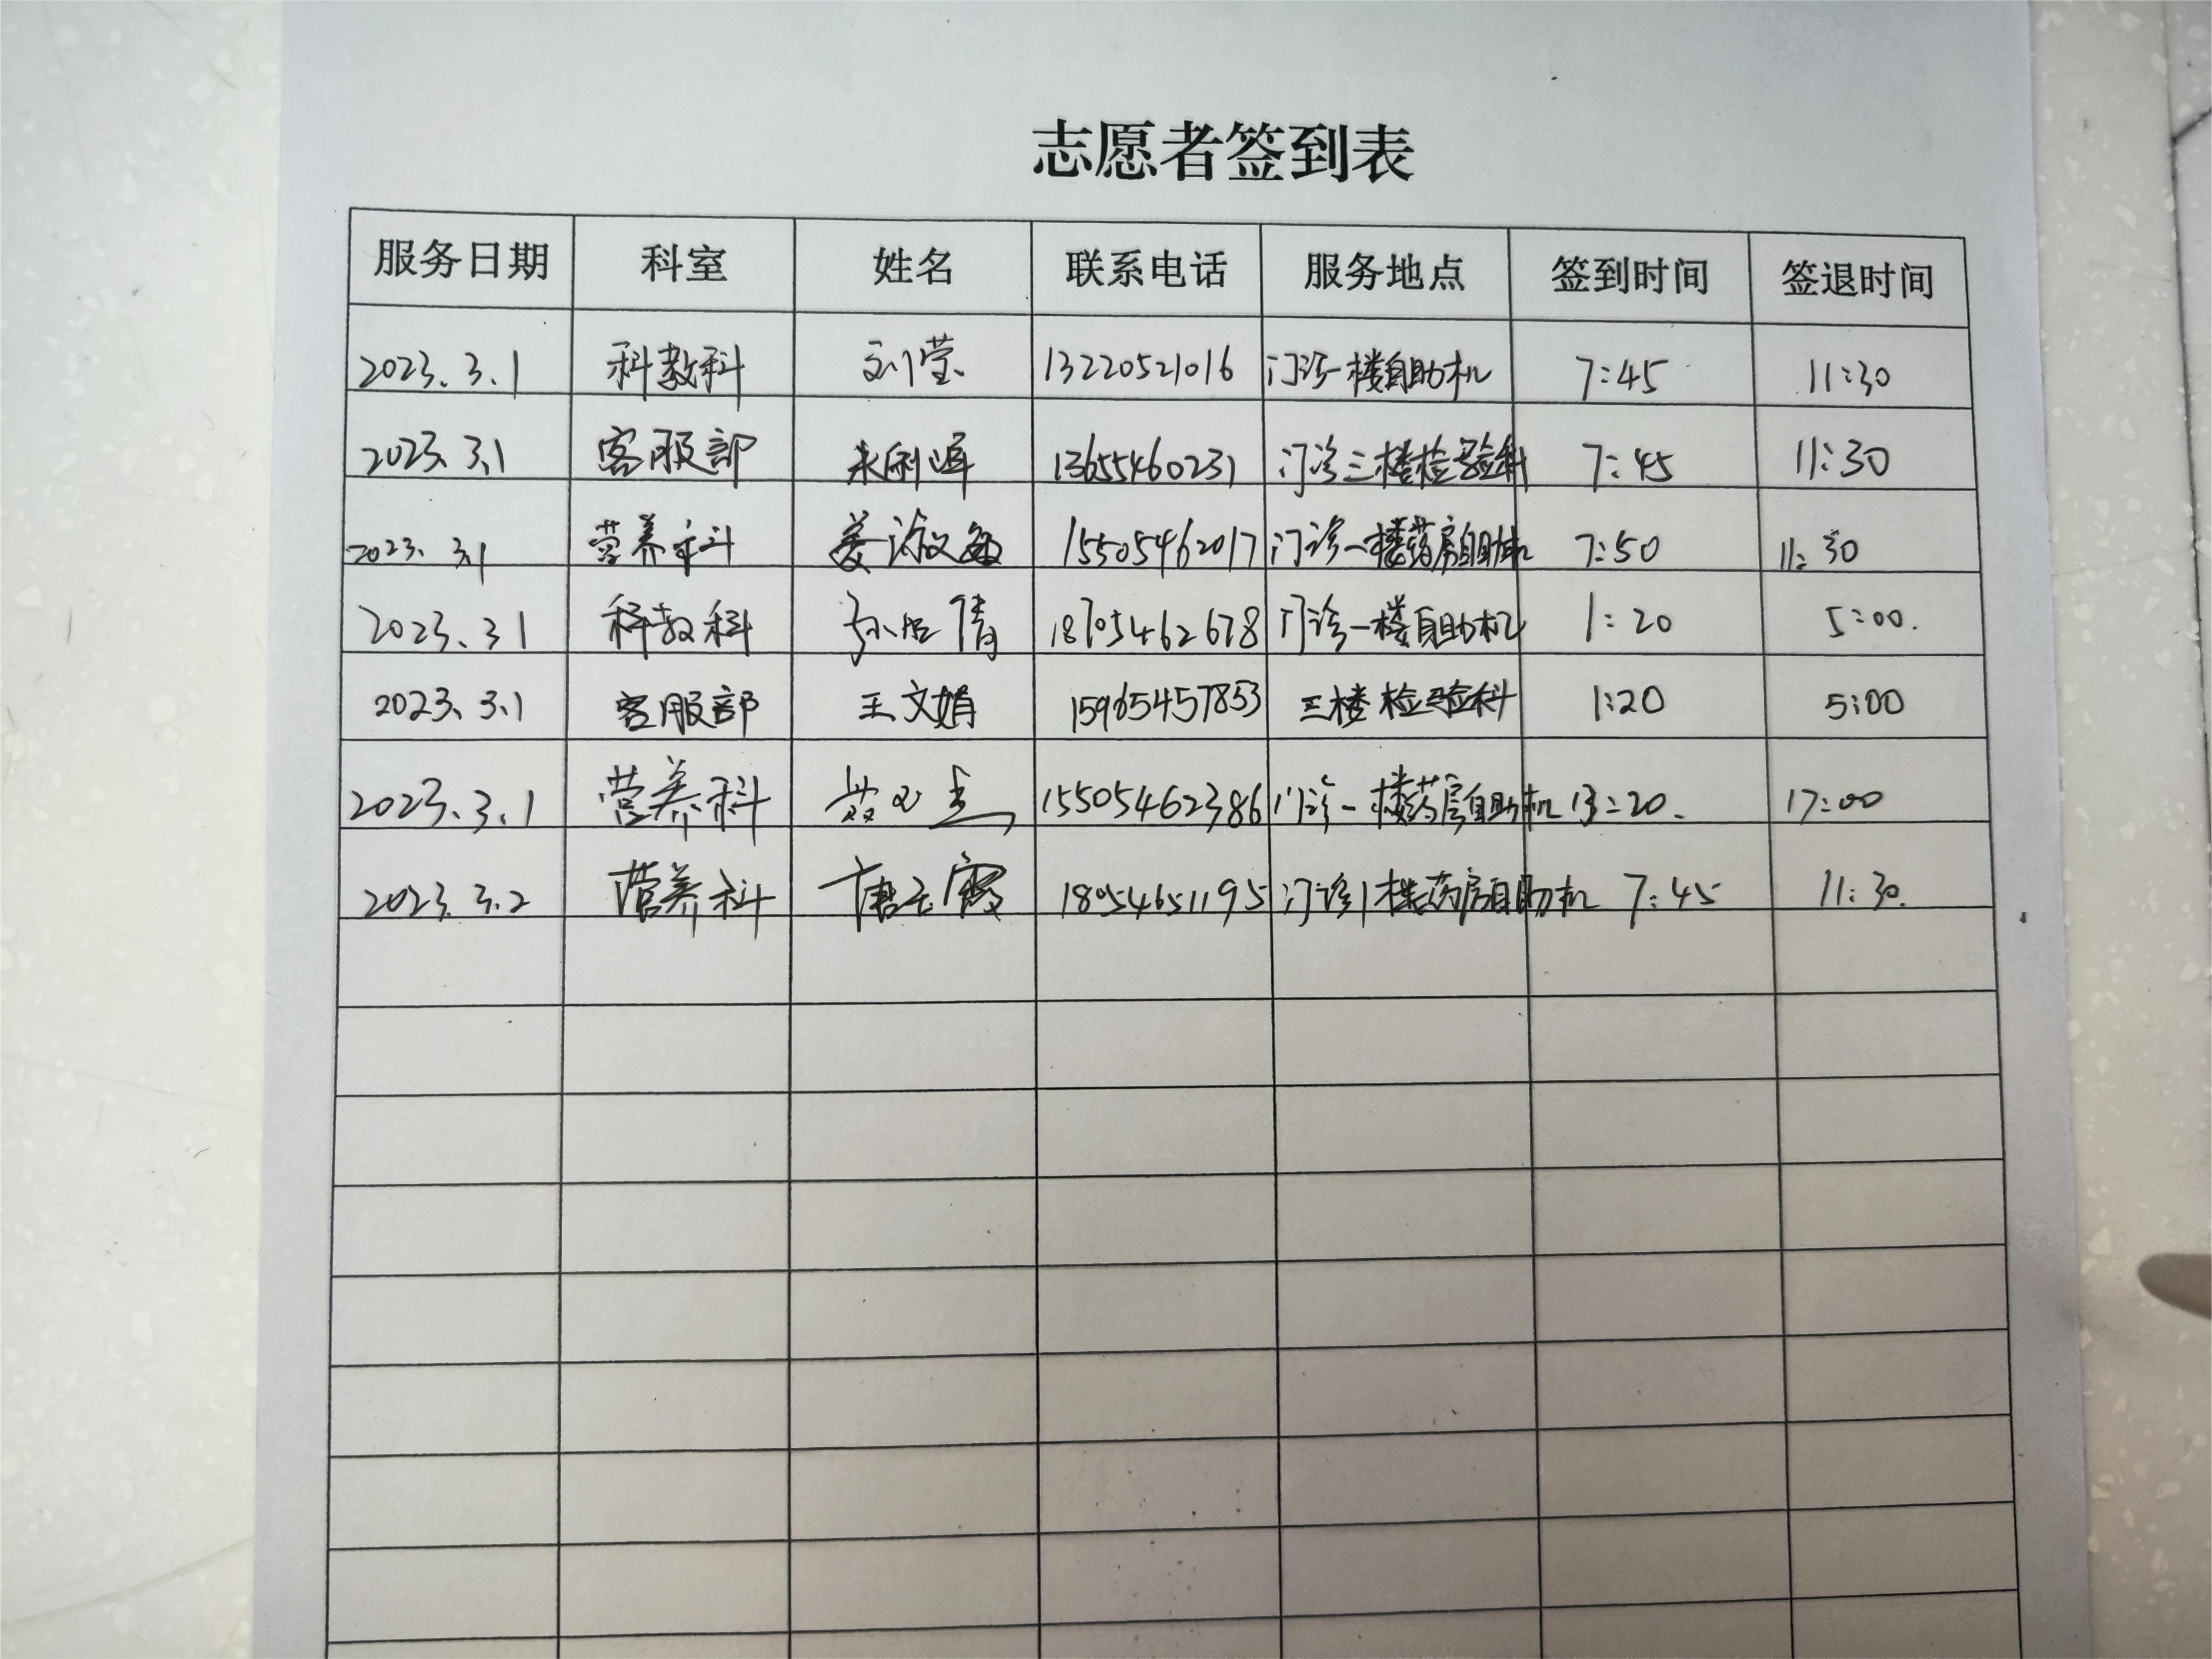 志愿者签到表
服务日期 科室 姓名 联系电话 服务地点 签到时间 签退时间
2023.3.1 科教科 刘莹 13220521016 门诊一楼自助机 7:45 11:30
2023.3.1 客服部 13655460231 门诊三楼检验科 7:45 11:30
2023.3.1 营养科 姜淑敏 15505462017 门诊一楼药房自助机 7:50 11:30
2023.3.1 科教科 18705462678 门诊一楼自助机 1:20 5:00.
2023.3.1 客服部 王文娟 15965457853 三楼检验科 1:20 5:00
2023.3.1 营养科 15505462386 门诊一楼药房自助机 13:20. 17:00
2023.3.2 营养科 唐玉霞 18054651195 门诊1楼药房自助机 7:45 11:30.